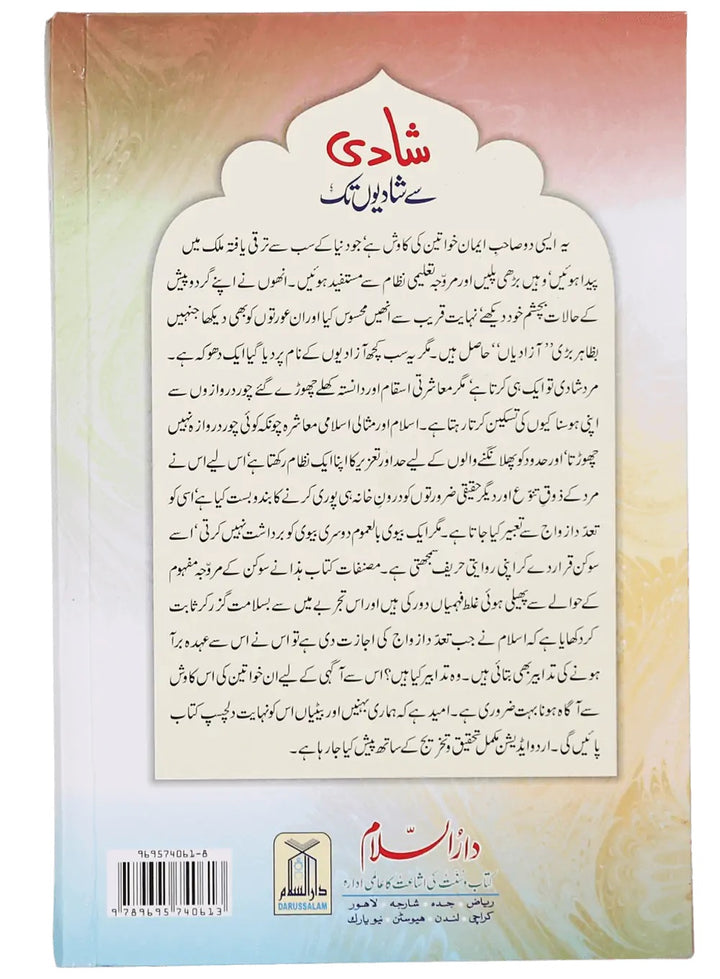 شادی
سے شادیوں تک
یہ ایسی دو صاحب ایمان خواتین کی کاوش ہے' جو دنیا کے سب سے ترقی یافتہ ملک میں
پیدا ہوئیں' وہیں بڑھی پلیں اور مروّجہ تعلیمی نظام سے مستفید ہوئیں۔ انھوں نے اپنے گرد و پیش
کے حالات بچشم خود دیکھے' نہایت قریب سے انھیں محسوس کیا اور ان عورتوں کو بھی دیکھا جنہیں
بظاہر بڑی ''آزادیاں'' حاصل ہیں۔ مگر یہ سب کچھ آزادیوں کے نام پر دیا گیا ایک دھوکہ ہے۔
مرد شادی تو ایک ہی کرتا ہے' مگر معاشرتی اسقام اور دانستہ کھلے چھوڑے گئے چور دروازوں سے
اپنی ہوسناکیوں کی تسکین کرتا رہتا ہے۔ اسلام اور مثالی اسلامی معاشرہ چونکہ کوئی چور دروازہ نہیں
چھوڑتا' اور حدود کو پھلانگنے والوں کے لیے حد اور تعزیر کا اپنا ایک نظام رکھتا ہے' اس لیے اس نے
مرد کے ذوقِ تنوّع اور دیگر حقیقی ضرورتوں کو درونِ خانہ ہی پوری کرنے کا بندوبست کیا ہے' اسی کو
تعدّدِ ازواج سے تعبیر کیا جاتا ہے۔ مگر ایک بیوی بالعموم دوسری بیوی کو برداشت نہیں کرتی' اسے
سوکن قرار دے کر اپنی روایتی حریف سمجھتی ہے۔ مصنفات کتاب ہذا نے سوکن کے مروّجہ مفہوم
کے حوالے سے پھیلی ہوئی غلط فہمیاں دور کی ہیں اور اس تجربے میں سے بسلامت گزر کر ثابت
کر دکھایا ہے کہ اسلام نے جب تعدّدِ ازواج کی اجازت دی ہے تو اس نے اس سے عہدہ برآ
ہونے کی تدابیر بھی بتائی ہیں۔ وہ تدابیر کیا ہیں؟ اس سے آگہی کے لیے ان خواتین کی اس کاوش
سے آگاہ ہونا بہت ضروری ہے۔ امید ہے کہ ہماری بہنیں اور بیٹیاں اس کو نہایت دلچسپ کتاب
پائیں گی۔ اردو ایڈیشن مکمل تحقیق و تخریج کے ساتھ پیش کیا جا رہا ہے۔
دارُالسّلام
کتاب و سُنّت کی اشاعت کا عالمی ادارہ
ریاض • جدہ • شارجہ • لاہور
کراچی • لندن • ہیوسٹن • نیو یارک
دارالسلام
DARUSSALAM
969574061-8
9 789695 740613